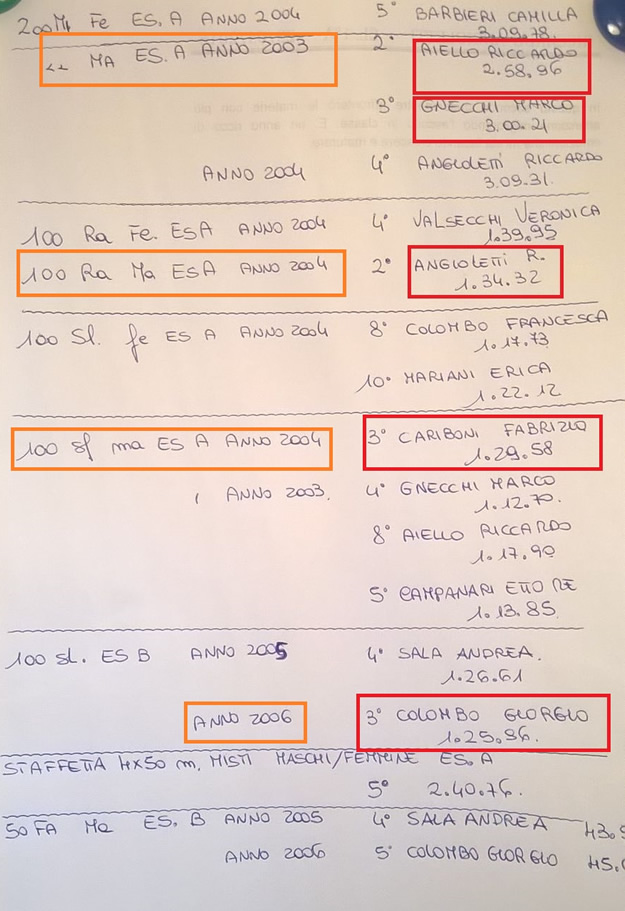 200 Mi Fe ES. A ANNO 2004 5° BARBIERI CAMILLA
3.09.78.
" MA ES. A ANNO 2003 2° AIELLO RICCARDO
2.58.96
3° GNECCHI MARCO
3.00.21
ANNO 2004 4° ANGIOLETTI RICCARDO
3.09.31.
100 Ra Fe. ES A ANNO 2004 4° VALSECCHI VERONICA
1.39.95
100 Ra Ma ES A ANNO 2004 2° ANGIOLETTI R.
1.34.32
100 Sl. fe ES A ANNO 2004 8° COLOMBO FRANCESCA
1.17.73
10° MARIANI ERICA
1.22.12
100 sl ma ES A ANNO 2004 3° CARIBONI FABRIZIO
1.29.58
ANNO 2003. 4° GNECCHI MARCO
1.12.70.
8° AIELLO RICCARDO
1.17.90
5° CAMPANARI ETTORE
1.13.85
100 sl. ES B ANNO 2005 4° SALA ANDREA.
1.26.61
ANNO 2006 3° COLOMBO GIORGIO
1.25.96.
STAFFETTA 4x50 m. MISTI MASCHI/FEMMINE ES. A
5° 2.40.76.
50 FA Ma ES. B ANNO 2005 4° SALA ANDREA 43.
ANNO 2006 5° COLOMBO GIORGIO 45.